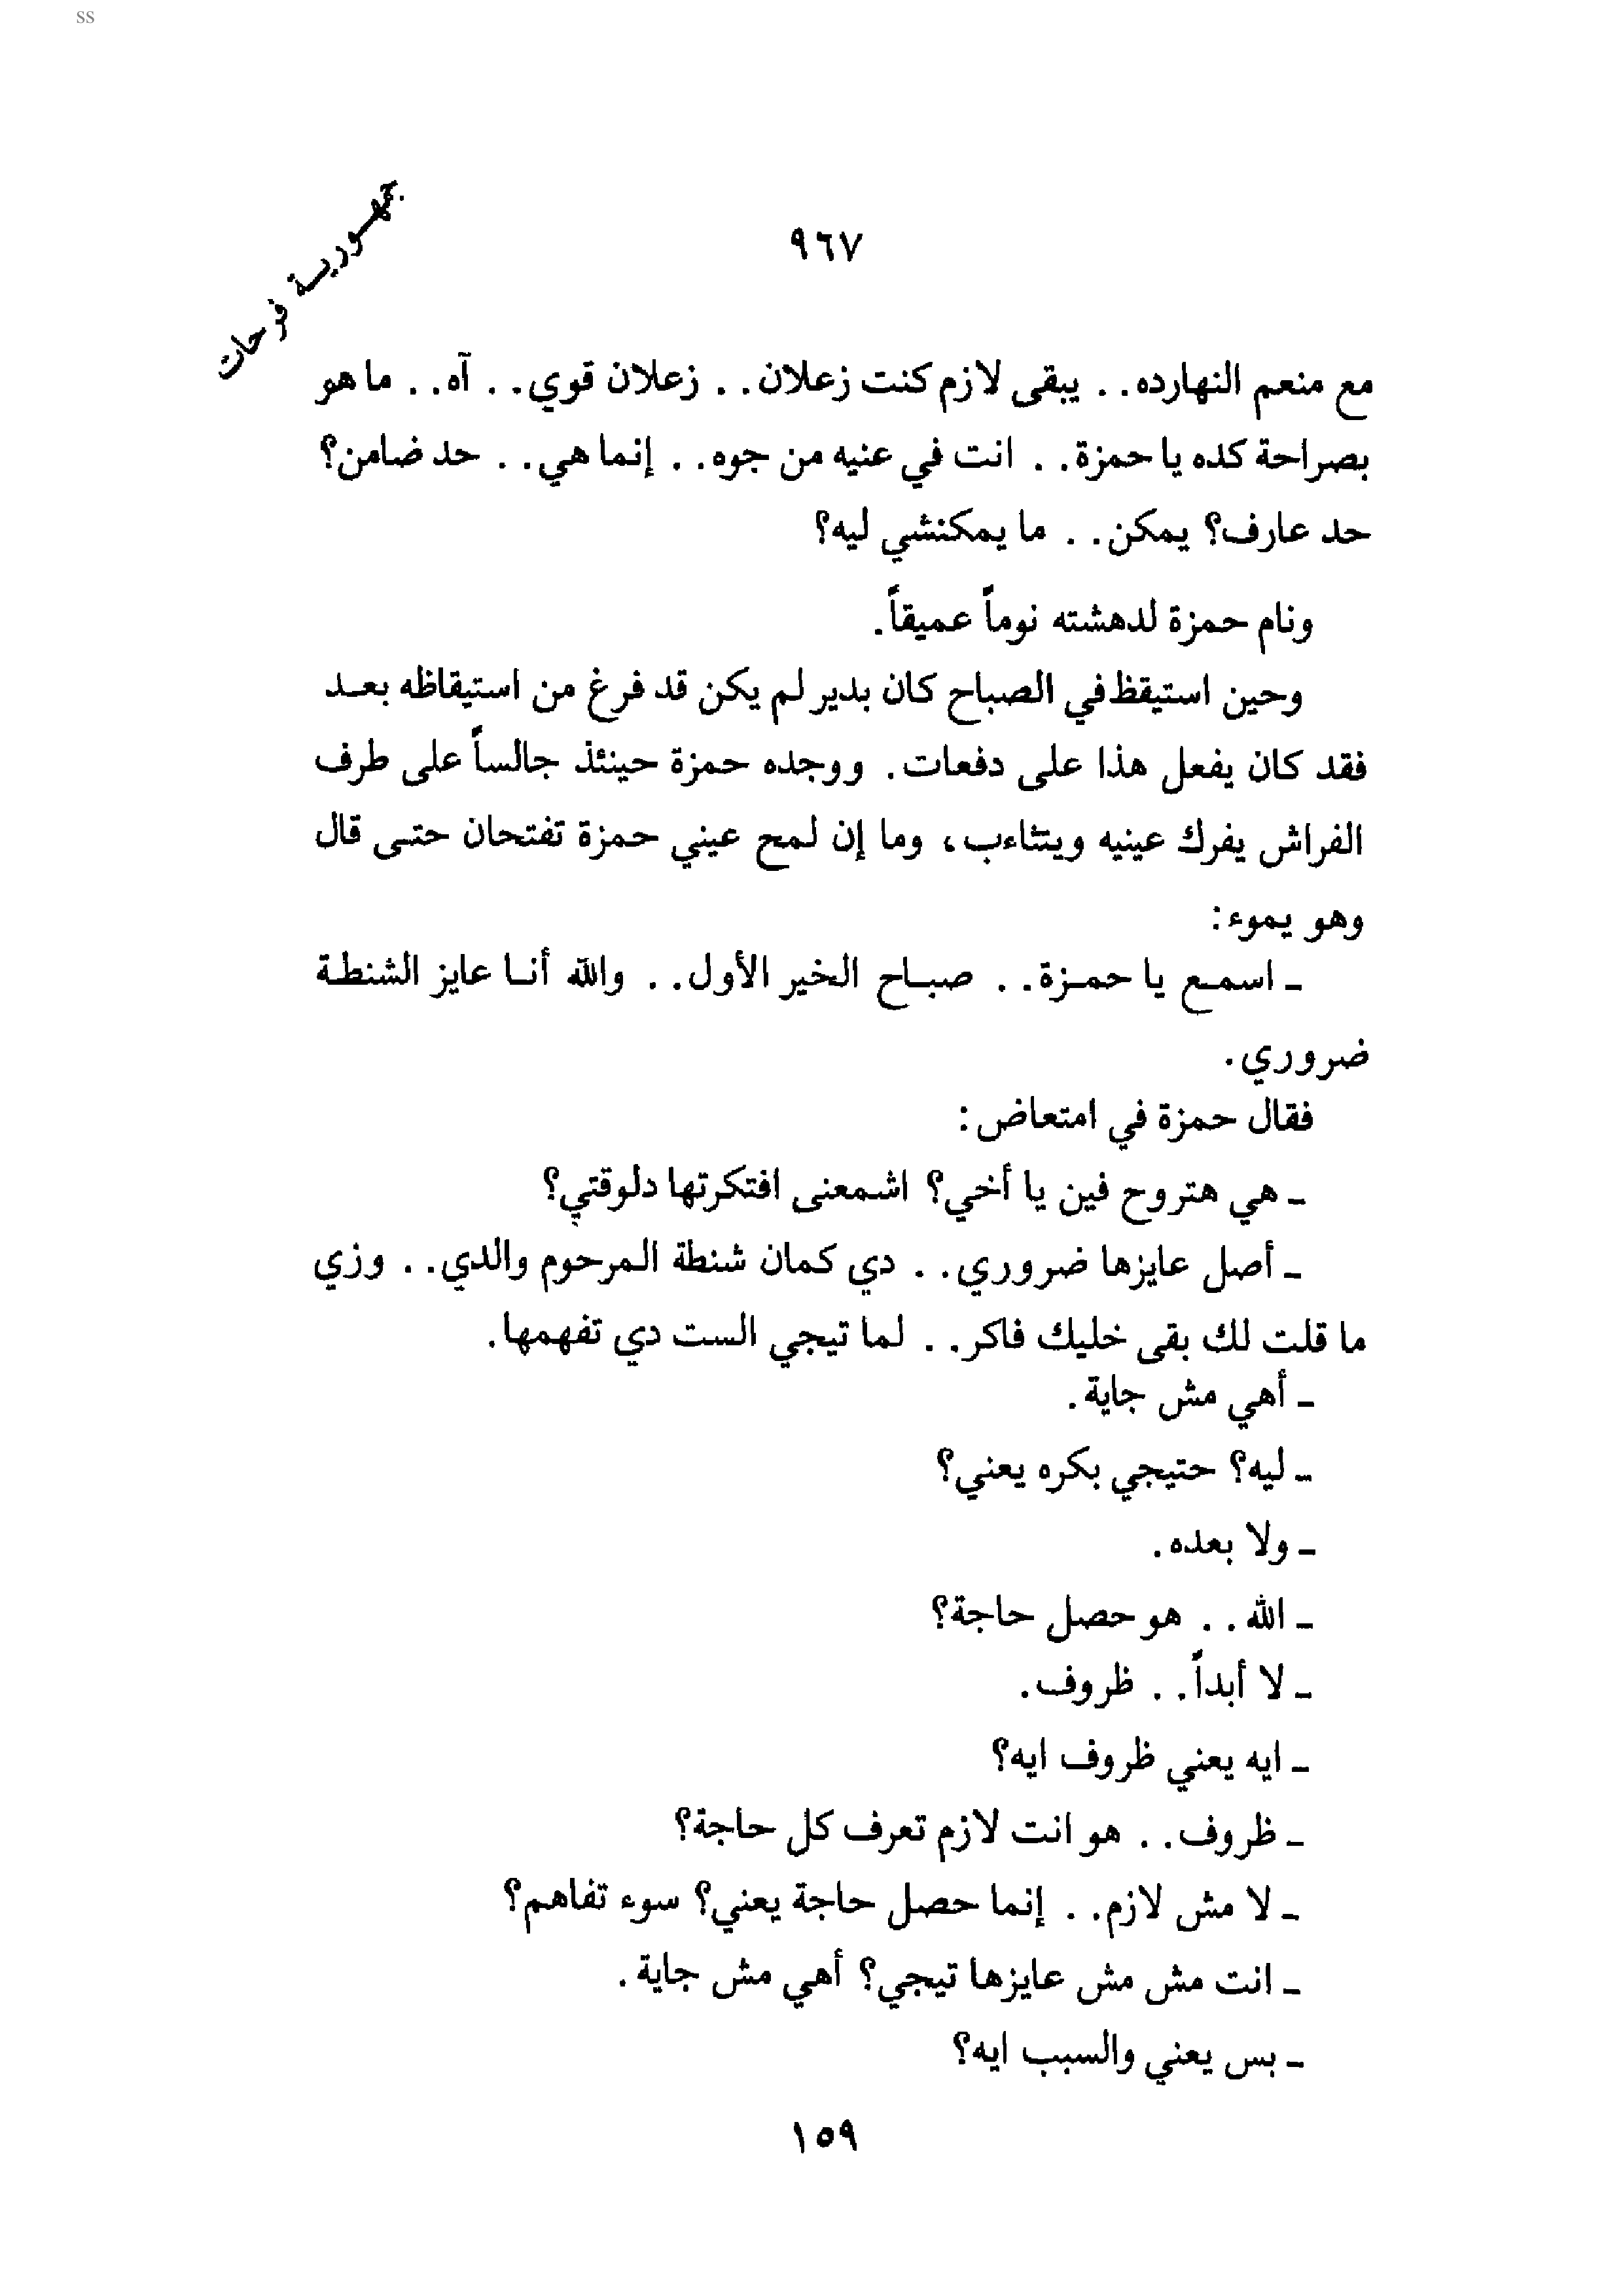 ss
جمهورية فرحات
٩٦٧
مع منعم النهارده. . يبقى لازم كنت زعلان. . زعلان قوي. . آه. . ما هو
بصراحة كده يا حمزة. . انت في عنيه من جوه. . إنما هي. . حد ضامن؟
حد عارف؟ يمكن. . ما يمكنشي ليه؟
ونام حمزة لدهشته نوماً عميقاً.
وحين استيقظ في الصباح كان بدير لم يكن قد فرغ من استيقاظه بعد
فقد كان يفعل هذا على دفعات. ووجده حمزة حينئذ جالساً على طرف
الفراش يفرك عينيه ويتثاءب، وما إن لمح عيني حمزة تفتحان حتى قال
وهو يموء:
ـ اسمع يا حمزة. . صباح الخير الأول. . والله أنا عايز الشنطة
ضروري.
فقال حمزة في امتعاض:
ـ هي هتروح فين يا أخي؟ اشمعنى افتكرتها دلوقتي؟
ـ أصل عايزها ضروري. . دي كمان شنطة المرحوم والدي. . وزي
ما قلت لك بقى خليك فاكر. . لما تيجي الست دي تفهمها.
ـ أهي مش جاية.
ـ ليه؟ حتيجي بكره يعني؟
ـ ولا بعده.
ـ الله. . هو حصل حاجة؟
ـ لا أبداً. . ظروف.
ـ ايه يعني ظروف ايه؟
ـ ظروف. . هو انت لازم تعرف كل حاجة؟
ـ لا مش لازم. . إنما حصل حاجة يعني؟ سوء تفاهم؟
ـ انت مش مش عايزها تيجي؟ أهي مش جاية.
ـ بس يعني والسبب ايه؟
١٥٩